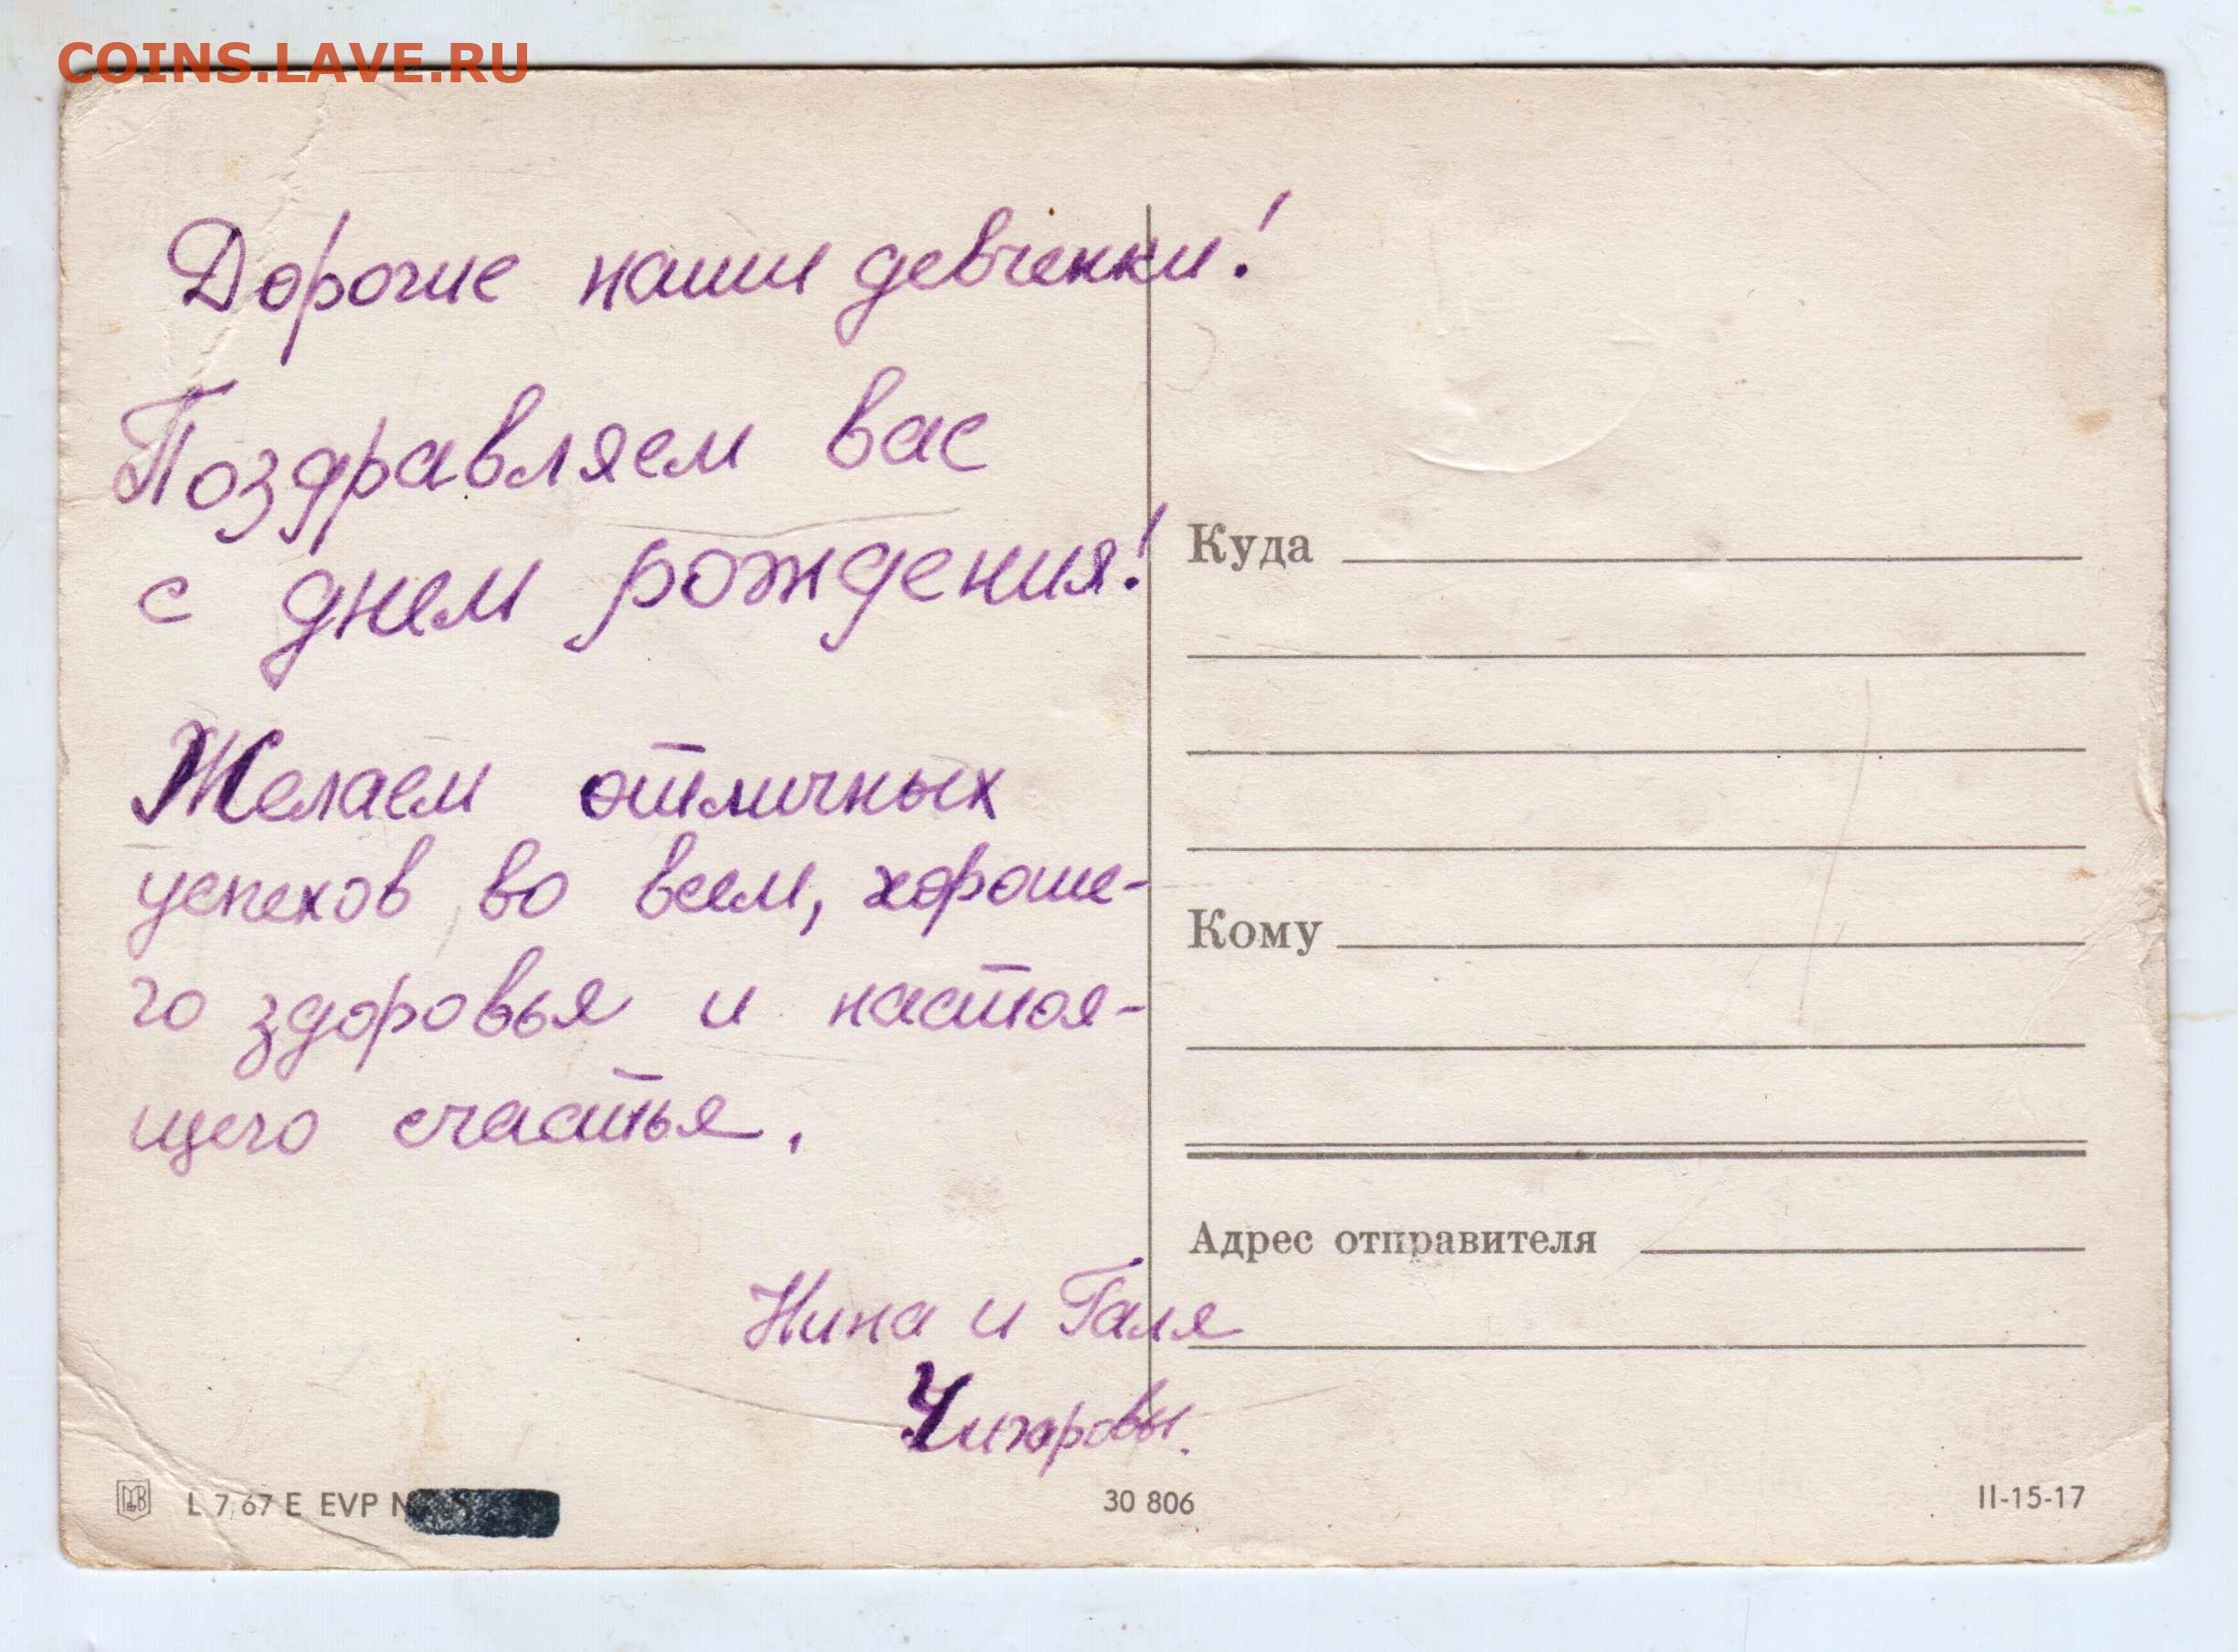 COINS.LAVE.RU
Дорогие наши девченки!
Поздравляем вас
с днем рождения!
Желаем отличных
успехов во всем, хороше-
го здоровья и настоя-
щего счастья.
Нина и Галя
Куда
Кому
Адрес отправителя
L 7/67 E EVP
30 806
II-15-17